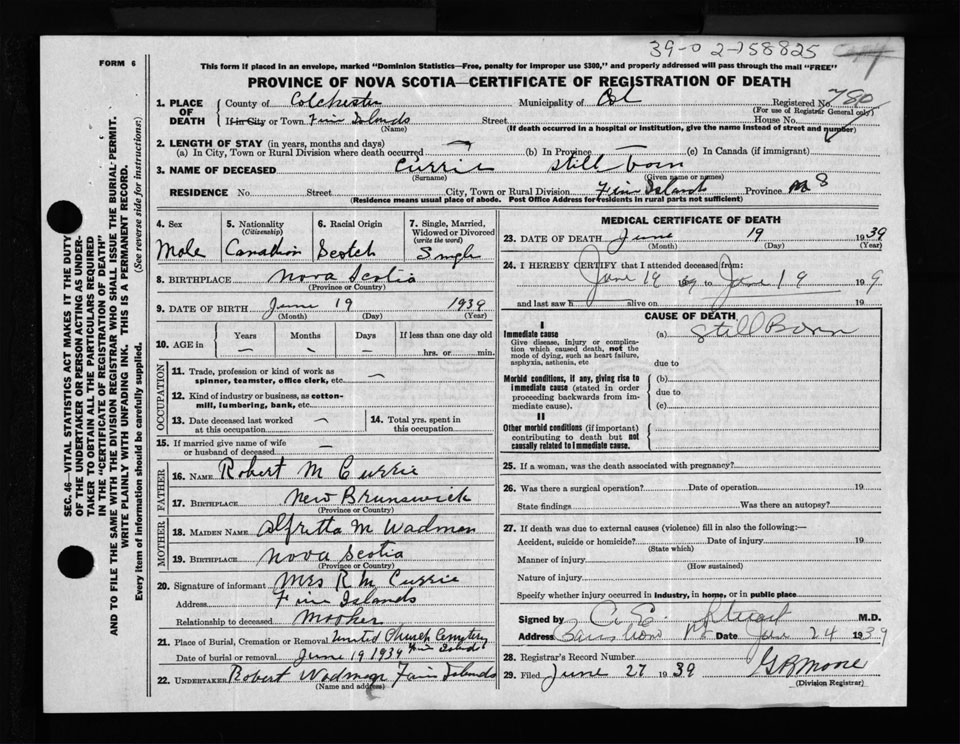 39-0 2-158825
FORM 6
This form if placed in an envelope, marked "Dominion Statistics—Free, penalty for improper use $300," and properly addressed will pass through the mail "FREE"
PROVINCE OF NOVA SCOTIA—CERTIFICATE OF REGISTRATION OF DEATH
SEC. 46—VITAL STATISTICS ACT MAKES IT THE DUTY
OF THE UNDERTAKER OR PERSON ACTING AS UNDER-
TAKER TO OBTAIN ALL THE PARTICULARS REQUIRED
IN THE "CERTIFICATE OF REGISTRATION OF DEATH"
AND TO FILE THE SAME WITH THE DIVISION REGISTRAR WHO SHALL ISSUE THE BURIAL PERMIT.
WRITE PLAINLY WITH UNFADING INK. THIS IS A PERMANENT RECORD.
Every item of information should be carefully supplied. (See reverse side for instructions)
1. PLACE OF DEATH County of Colchester Municipality of Col Registered No. 780
(For use of Registrar General only)
If in City or Town Five Islands Street House No.
(Name) (If death occurred in a hospital or institution, give the name instead of street and number)
2. LENGTH OF STAY (in years, months and days)
(a) In City, Town or Rural Division where death occurred — (b) In Province (c) In Canada (if immigrant)
3. NAME OF DECEASED Currie still born
(Surname) (Given name or names)
RESIDENCE No. Street City, Town or Rural Division Five Islands Province N S
(Residence means usual place of abode. Post Office Address for residents in rural parts not sufficient)
4. Sex 5. Nationality (Citizenship) 6. Racial Origin 7. Single, Married, Widowed or Divorced (write the word)
Male Canadian Scotch Single
8. BIRTHPLACE Nova Scotia
(Province or Country)
9. DATE OF BIRTH June 19 1939
(Month) (Day) (Year)
10. AGE in Years Months Days If less than one day old
— — — hrs. or min.
OCCUPATION
11. Trade, profession or kind of work as spinner, teamster, office clerk, etc. —
12. Kind of industry or business, as cotton-mill, lumbering, bank, etc.
13. Date deceased last worked at this occupation — 14. Total yrs. spent in this occupation
15. If married give name of wife or husband of deceased —
FATHER
16. NAME Robert M Currie
17. BIRTHPLACE New Brunswick
(Province or Country)
MOTHER
18. MAIDEN NAME Alfretta M Wadman
19. BIRTHPLACE Nova Scotia
(Province or Country)
20. Signature of informant Mrs R M Currie
Address Five Islands
Relationship to deceased Mother
21. Place of Burial, Cremation or Removal United Church Cemetery
Five Islands
Date of burial or removal June 19 1939
22. UNDERTAKER Robert Wadman Five Islands
(Name and address)
MEDICAL CERTIFICATE OF DEATH
23. DATE OF DEATH June 19 1939
(Month) (Day) (Year)
24. I HEREBY CERTIFY that I attended deceased from:
June 19 1939 to June 19 199
and last saw h alive on 19
CAUSE OF DEATH
I
Immediate cause (a) Still Born
Give disease, injury or complication which caused death, not the mode of dying, such as heart failure, asphyxia, asthenia, etc due to
Morbid conditions, if any, giving rise to immediate cause (stated in order proceeding backwards from immediate cause). (b)
due to
(c)
II
Other morbid conditions (if important) contributing to death but not causally related to immediate cause.
25. If a woman, was the death associated with pregnancy?
26. Was there a surgical operation? Date of operation 19
State findings Was there an autopsy?
27. If death was due to external causes (violence) fill in also the following:—
Accident, suicide or homicide? Date of injury 19
(State which)
Manner of injury
(How sustained)
Nature of injury
Specify whether injury occurred in industry, in home, or in public place
Signed by A. E. M.D.
Address NS Date June 24 1939
28. Registrar's Record Number
29. Filed June 27 1939 G R Moore
(Division Registrar)